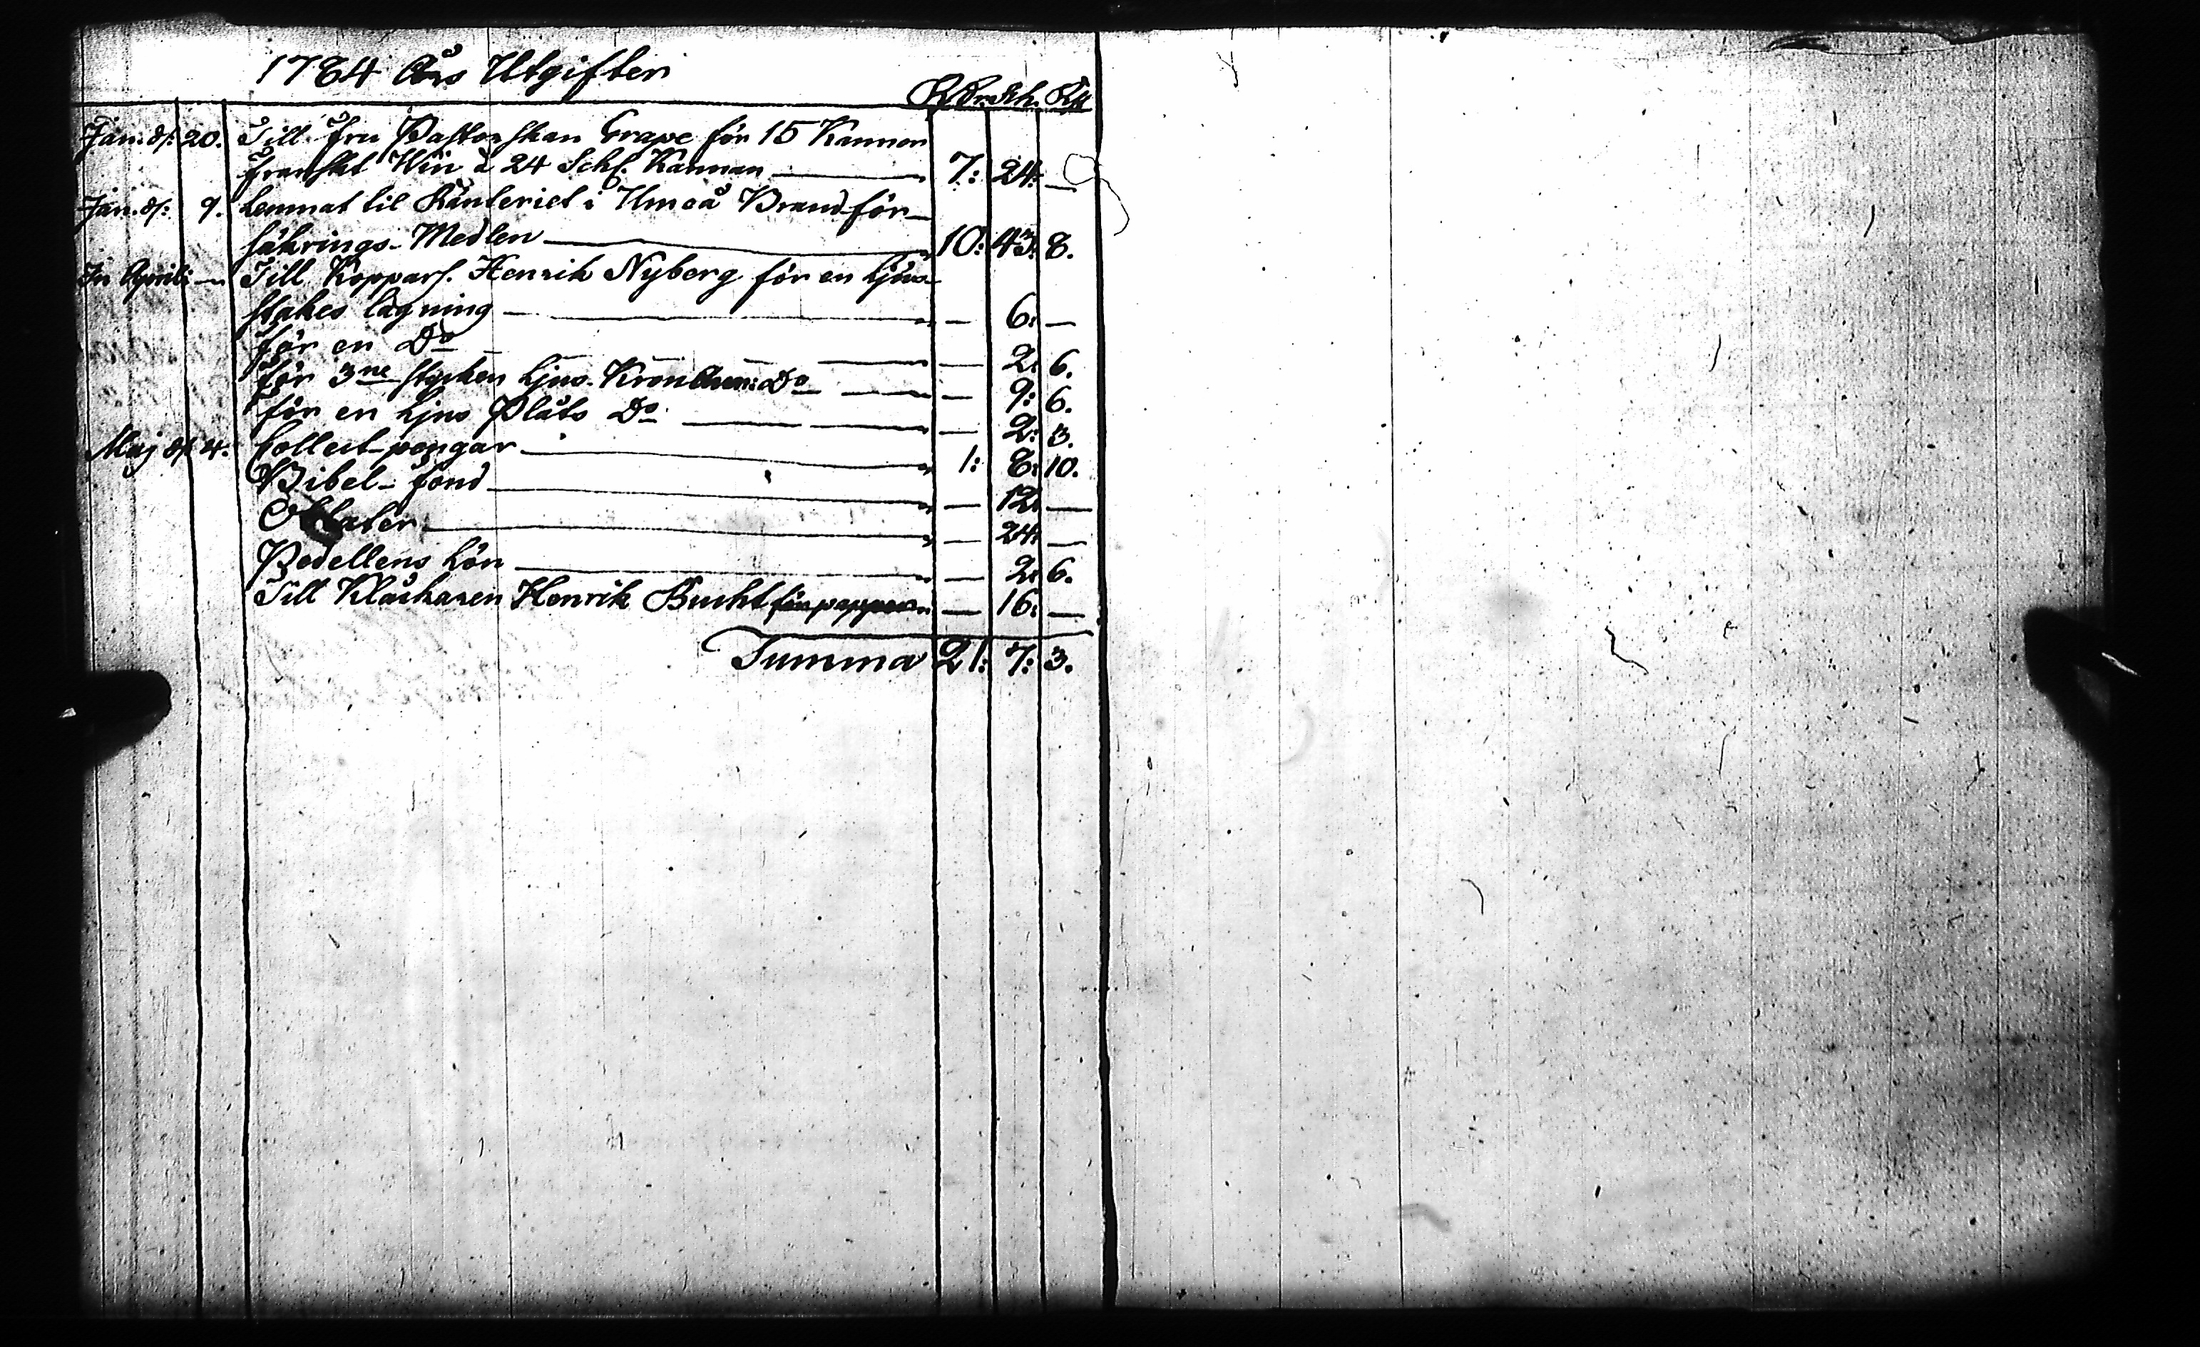 1784 Års Utgifter
R.Dr. Sch. Rst
Jan. d. 20. Till Fru Pastorskan Grape för 15 Kannor
franskt Win à 24 Sch. Kannan 7: 24: —
Jan. d: 9. Lemnat til Ränteriet i Umeå Brandför-
säkrings-Medlen 10: 43: 8.
In Aprili — Till Kopparsl. Henrik Nyberg för en Ljus-
stakes lagning — 6: —
för en Do — 2: 6.
för 3ne stycken Ljus-Kron Do — 9: 6.
för en Ljus Plåts Do — 2: 3.
Maj d. 4. Collect-pengar 1: 8: 10.
Bibel-fond — 12: —
Oblater — 24: —
Pedellens Lön — 2: 6.
Till Klåckaren Henrik Bucht för papper — 16: —
Summa 21: 7: 3.